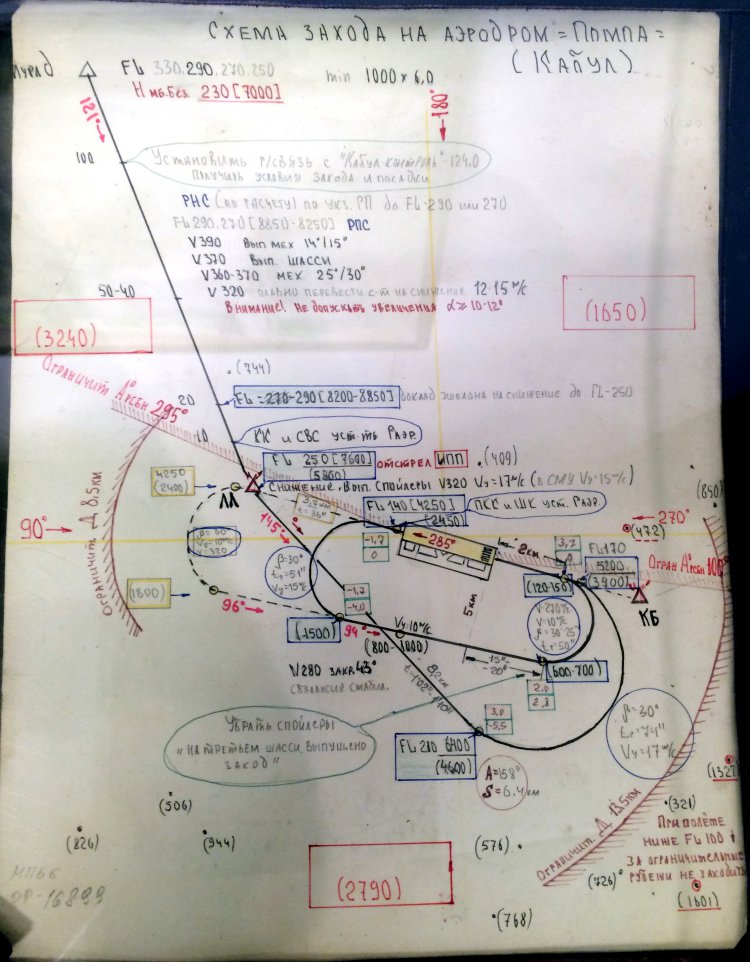 СХЕМА ЗАХОДА НА АЭРОДРОМ =ПОМПА=
(КАБУЛ)
FL 330.290.270.250
min 1000 x 6,0
Н мб.без. 230 [7000]
121°
180°
100
УСТАНОВИТЬ Р/СВЯЗЬ С "КАБУЛ-КОНТРОЛЬ" 124.0
ПОЛУЧИТЬ УСЛОВИЯ ЗАХОДА И ПОСАДКИ
РНС (ПО РАСЧЕТУ) ПО УКЪ РП ДО FL-290 ИЛИ 270
FL 290.270 [8850-8250] РПС
V390 ВЫП МЕХ 14°/15°
V370 ВЫП. ШАССИ
V360-370 МЕХ 25°/30°
V 320 ПЛАВНО ПЕРЕВЕСТИ С-Т НА СНИЖЕНИЕ 12-15 м/с
ВНИМАНИЕ! НЕ ДОПУСКАТЬ УВЕЛИЧЕНИЯ α ≥ 10-12°
50-40
(3240)
(1650)
(744)
ОГРАНИЧИТ А°РСБН 295°
20
FL = 270-290 [8200-8850] ДОКЛАД ЭШЕЛОНА НА СНИЖЕНИЕ ДО FL-250
10
КК И СВС УСТ-ТЬ Раэр.
FL 250 [7600]
(5800)
ОТСТРЕЛ ИПП
(409)
4250
(2400)
ЛЛ
СНИЖЕНИЕ, ВЫП. СПОЙЛЕРЫ V320 Vy=17м/с (В СМУ Vy=15м/с)
(850)
FL 140 [4250]
(2450)
ПКС И ШК УСТ. Раэр.
ОГРАНИЧИТ. Д 8,5 КМ
90°
270°
(472)
145°
β=30°
V=320
-1,7
0
285°
2км
3,7
FL 170
5200
(3400)
ОГРАН А°РСБН 100°
β=30°
tг=51"
Vy=15м/с
(120-150)
КБ
(1800)
96°
-1,7
-4,0
5 км
V-270%
V=10м/с
β=30°-25°
tг=50"
(1500)
94°
Vy=10м/с
(800-1000)
15°
-20°
(600-700)
V280 ЗАКР. 43°
8,2км
2,0
2,8
УБРАТЬ СПОЙЛЕРЫ
"НА ТРЕТЬЕМ ШАССИ ВЫПУЩЕНО
ЗАХОД"
3,0
-5,5
FL 210 6400
(4600)
β=30°
tг=74"
Vy=17м/с
А=158°
S=6,4 км
ОГРАНИЧИТ. Д 13,5 КМ
(1327)
(506)
(321)
(826)
(944)
(576)
(726)
ПРИ ПОЛЁТЕ
НИЖЕ FL 100
ЗА ОГРАНИЧИТЕЛЬНЫЕ
РУБЕЖИ НЕ ЗАХОДИТЬ
(2790)
(1601)
(768)
ОФ-16899